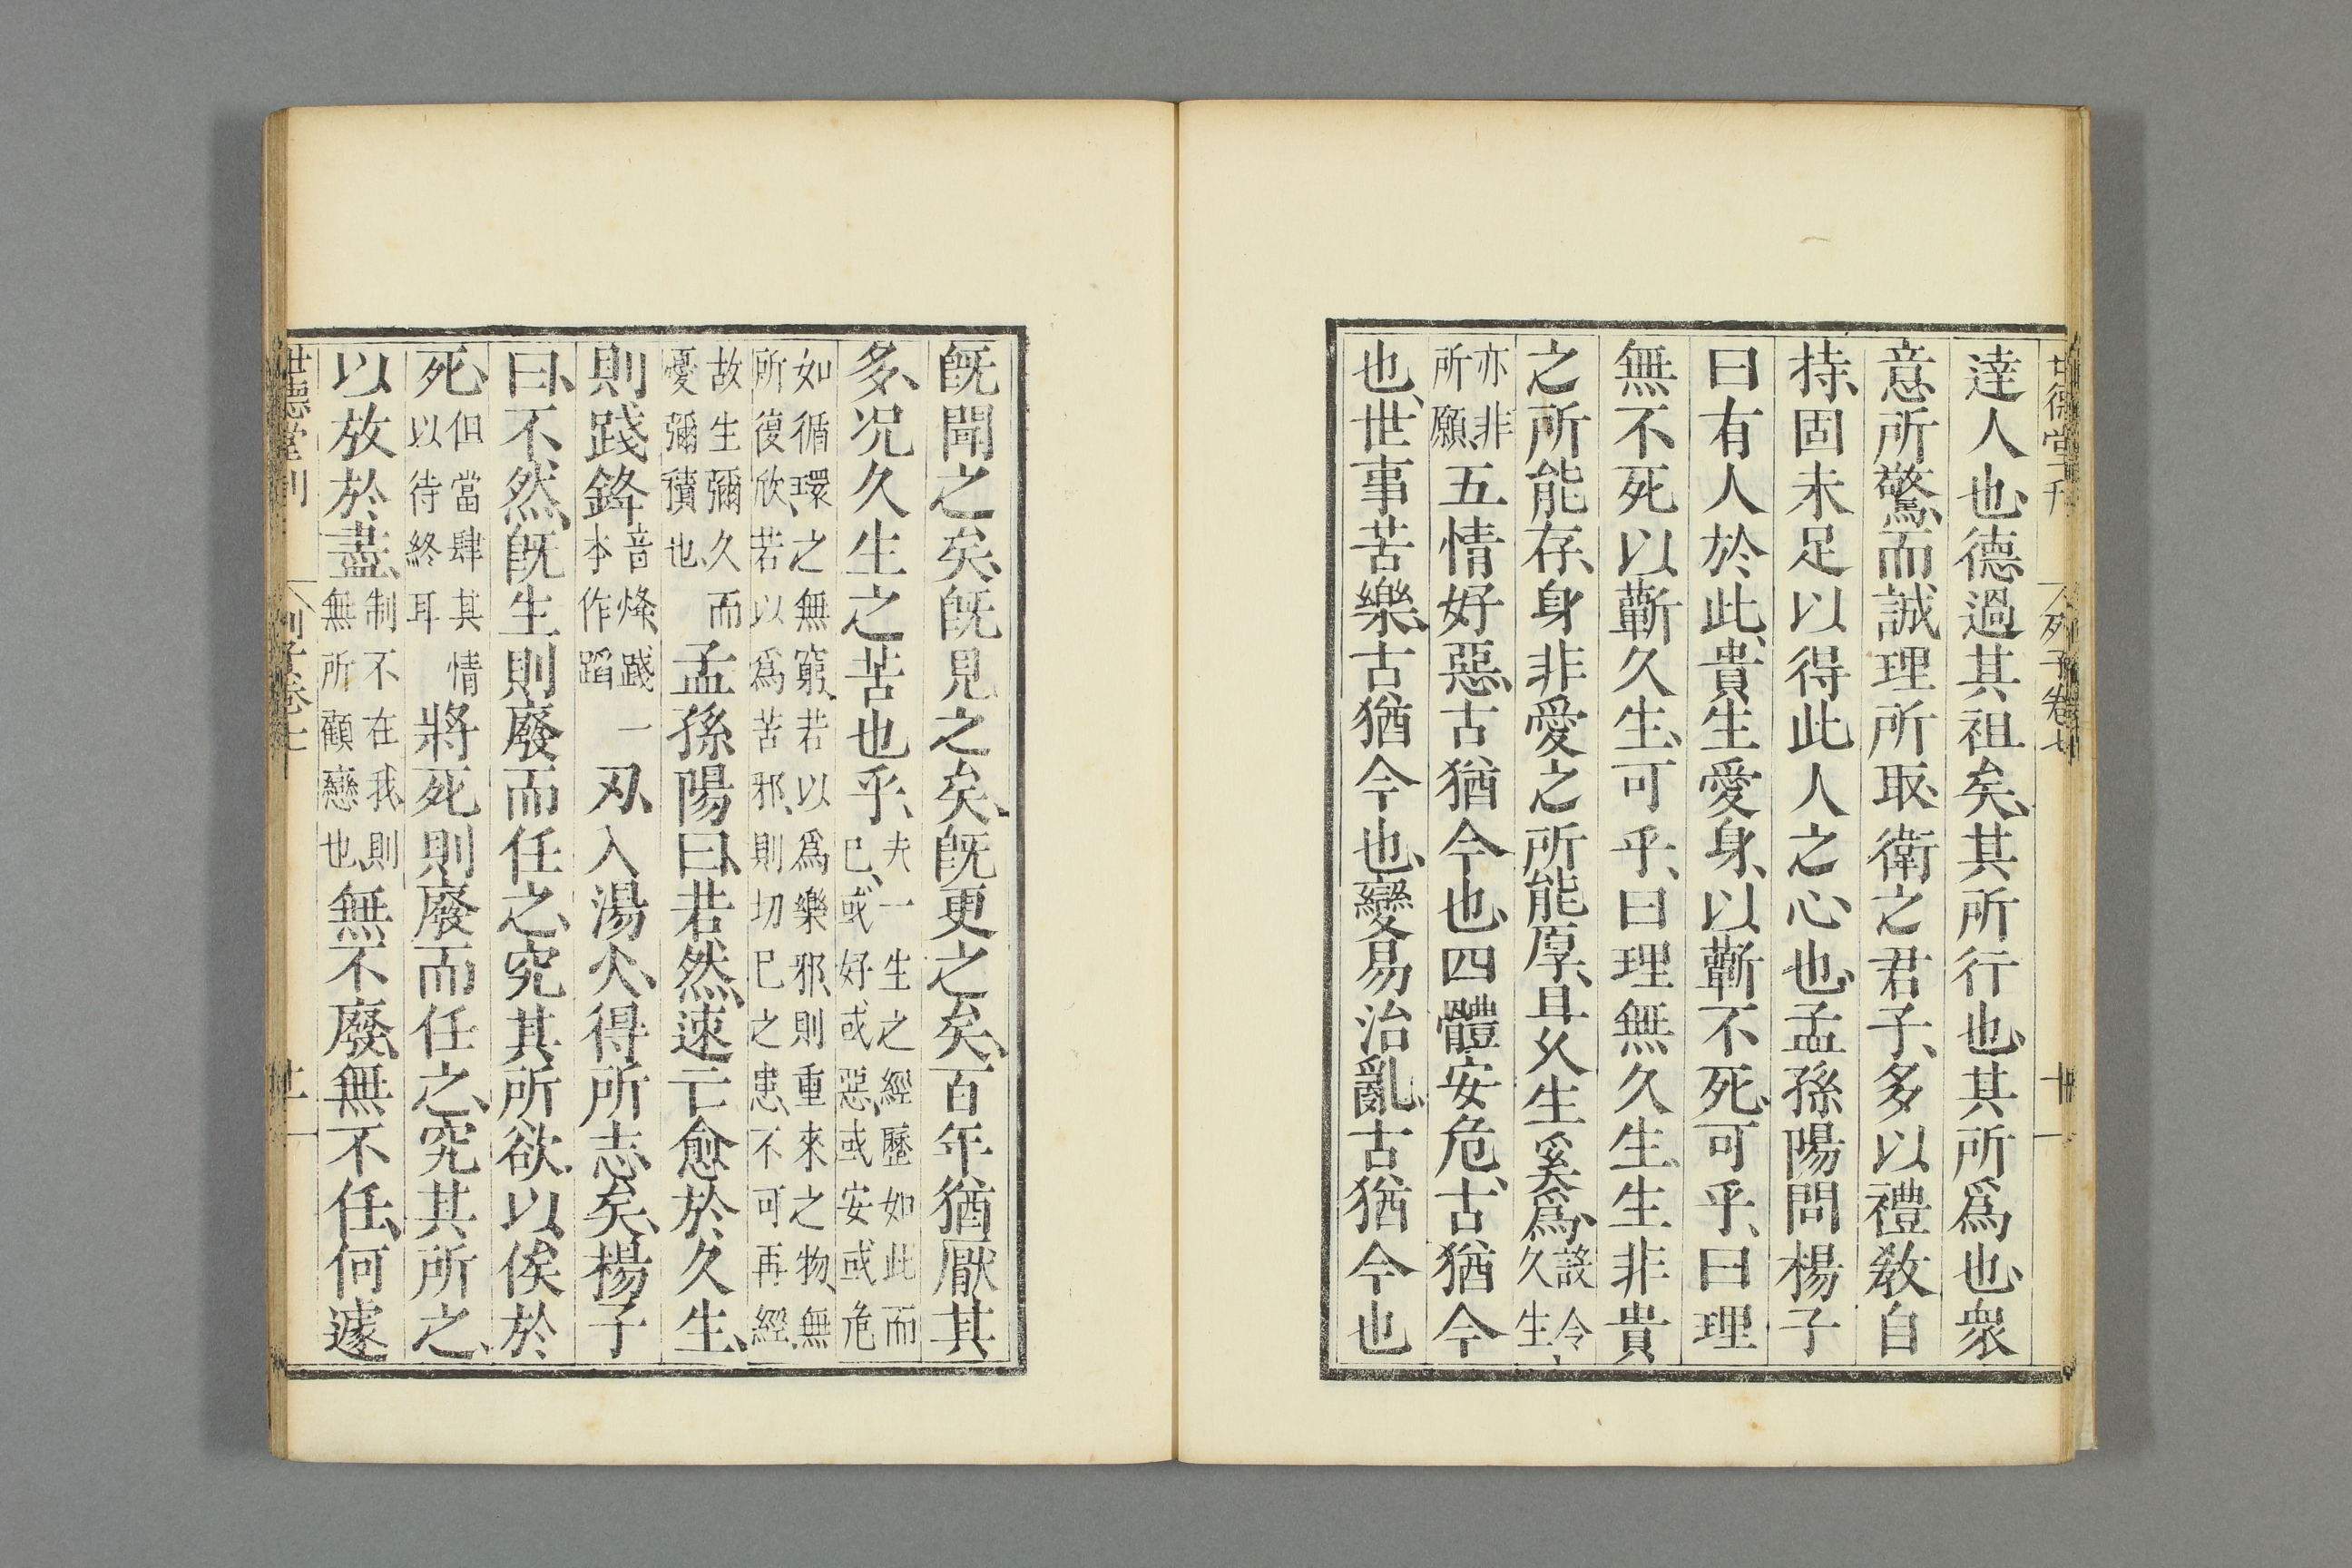 達人也、德過其祖矣、其所行也、其所爲也、衆
意所驚、而誠理所取、衛之君子、多以禮敎自
持、固未足以得此人之心也、孟孫陽問楊子
曰有人於此、貴生愛身、以蘄不死、可乎、曰理
無不死以蘄久生、可乎、曰理無久生、生非貴
之所能存、身非愛之所能厚、且久生奚爲、設令久生
亦非所願、五情好惡、古猶今也、四體安危、古猶今
也、世事苦樂、古猶今也、變易治亂、古猶今也
旣聞之矣、旣見之矣、旣更之矣、百年猶厭其
多、况久生之苦也乎、夫一生之經歷如此而已、或好或惡、或安或危
如循環、之無窮、若以爲樂邪、則重來之物、無所復欣、若以爲苦邪、則切已之患、不可再經、
故生彌久而憂彌積也、孟孫陽曰、若然、速亡愈於久生、
則踐鋒音烽、踐本作蹈一刃、入湯火、得所志矣、楊子
曰、不然、旣生則廢而任之、究其所欲、以俟於
死、但當肆其情以待終耳將死則廢而任之、究其所之、
以放於盡、制不在我、則無所顧戀也、無不廢、無不任、何遽
世德堂刊
列子卷七
十一